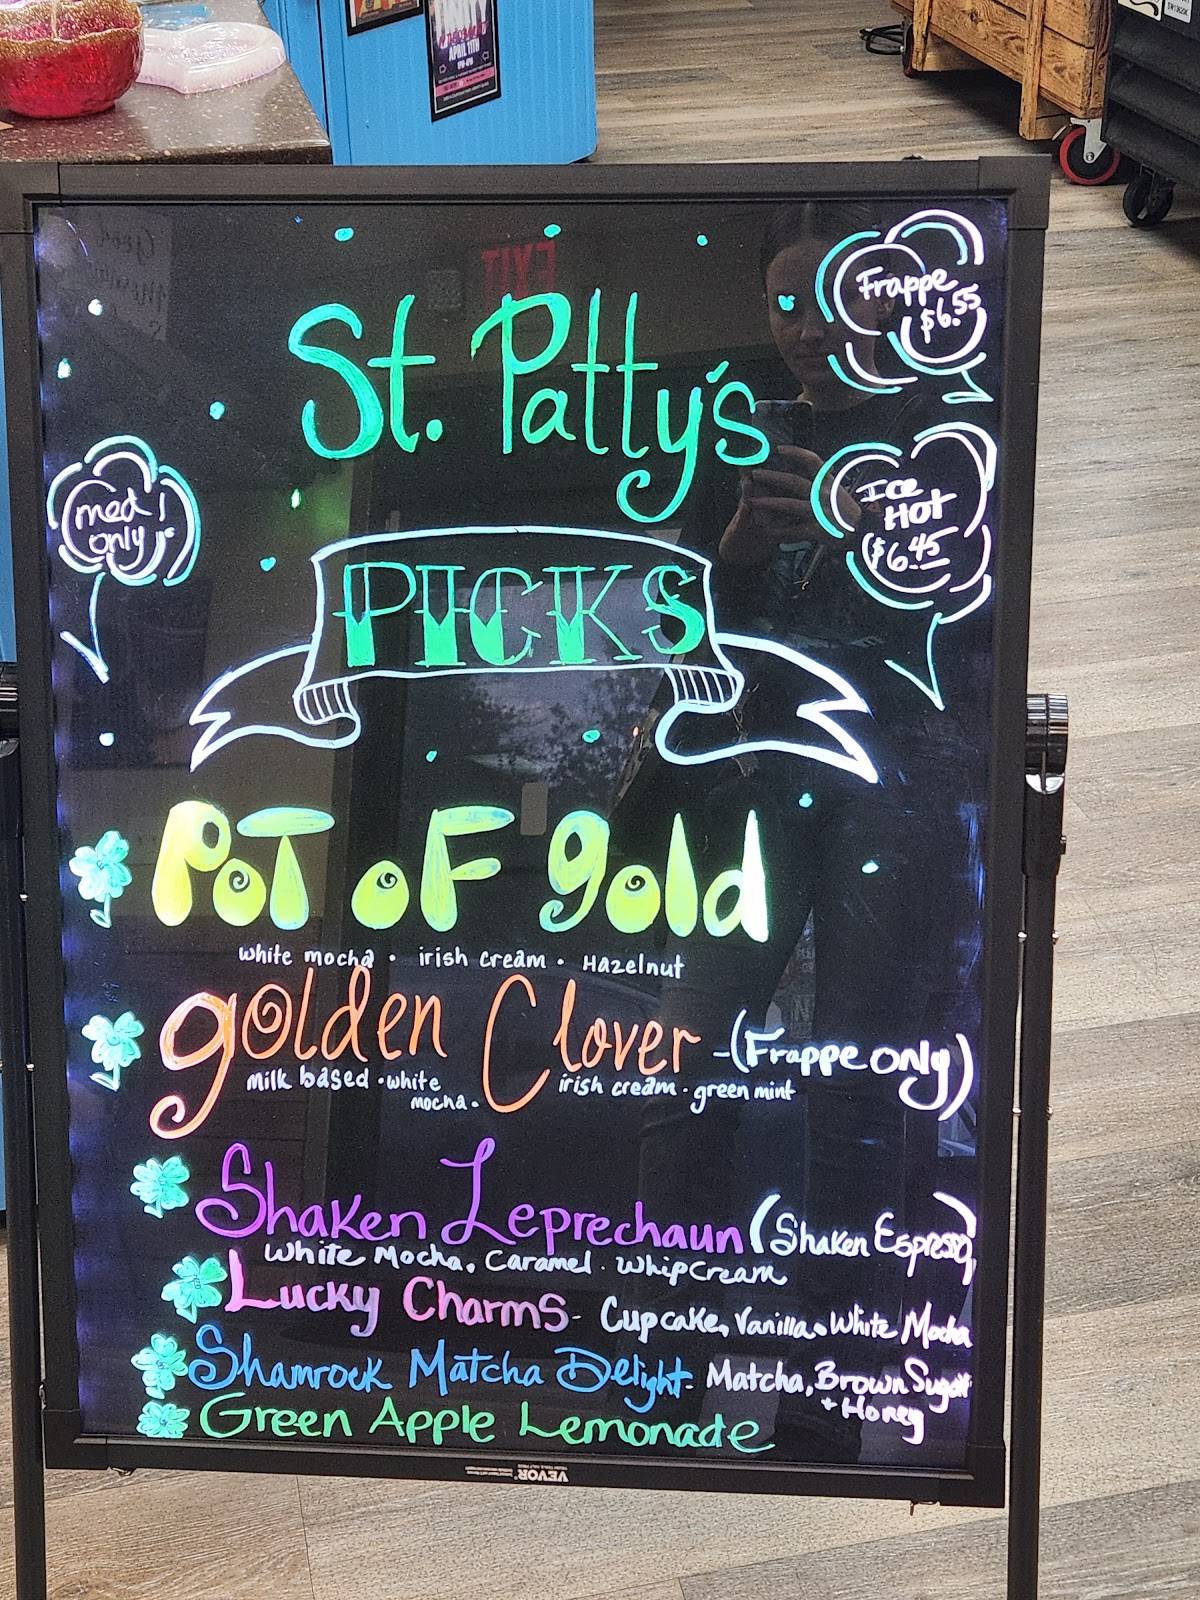 APRIL 11TH
EXIT
Frappe
$6.55
St. Patty's
med
only!
Ice
Hot
$6.45
PICKS
Pot of gold
white mocha • irish cream • Hazelnut
golden Clover - (Frappe only)
milk based • white
mocha •
irish cream • green mint
Shaken Leprechaun (Shaken Espresso)
White Mocha, Caramel • Whip Cream
Lucky Charms - Cupcake, Vanilla • White Mocha
Shamrock Matcha Delight - Matcha, Brown Sugar
+ Honey
Green Apple Lemonade
VEVOR